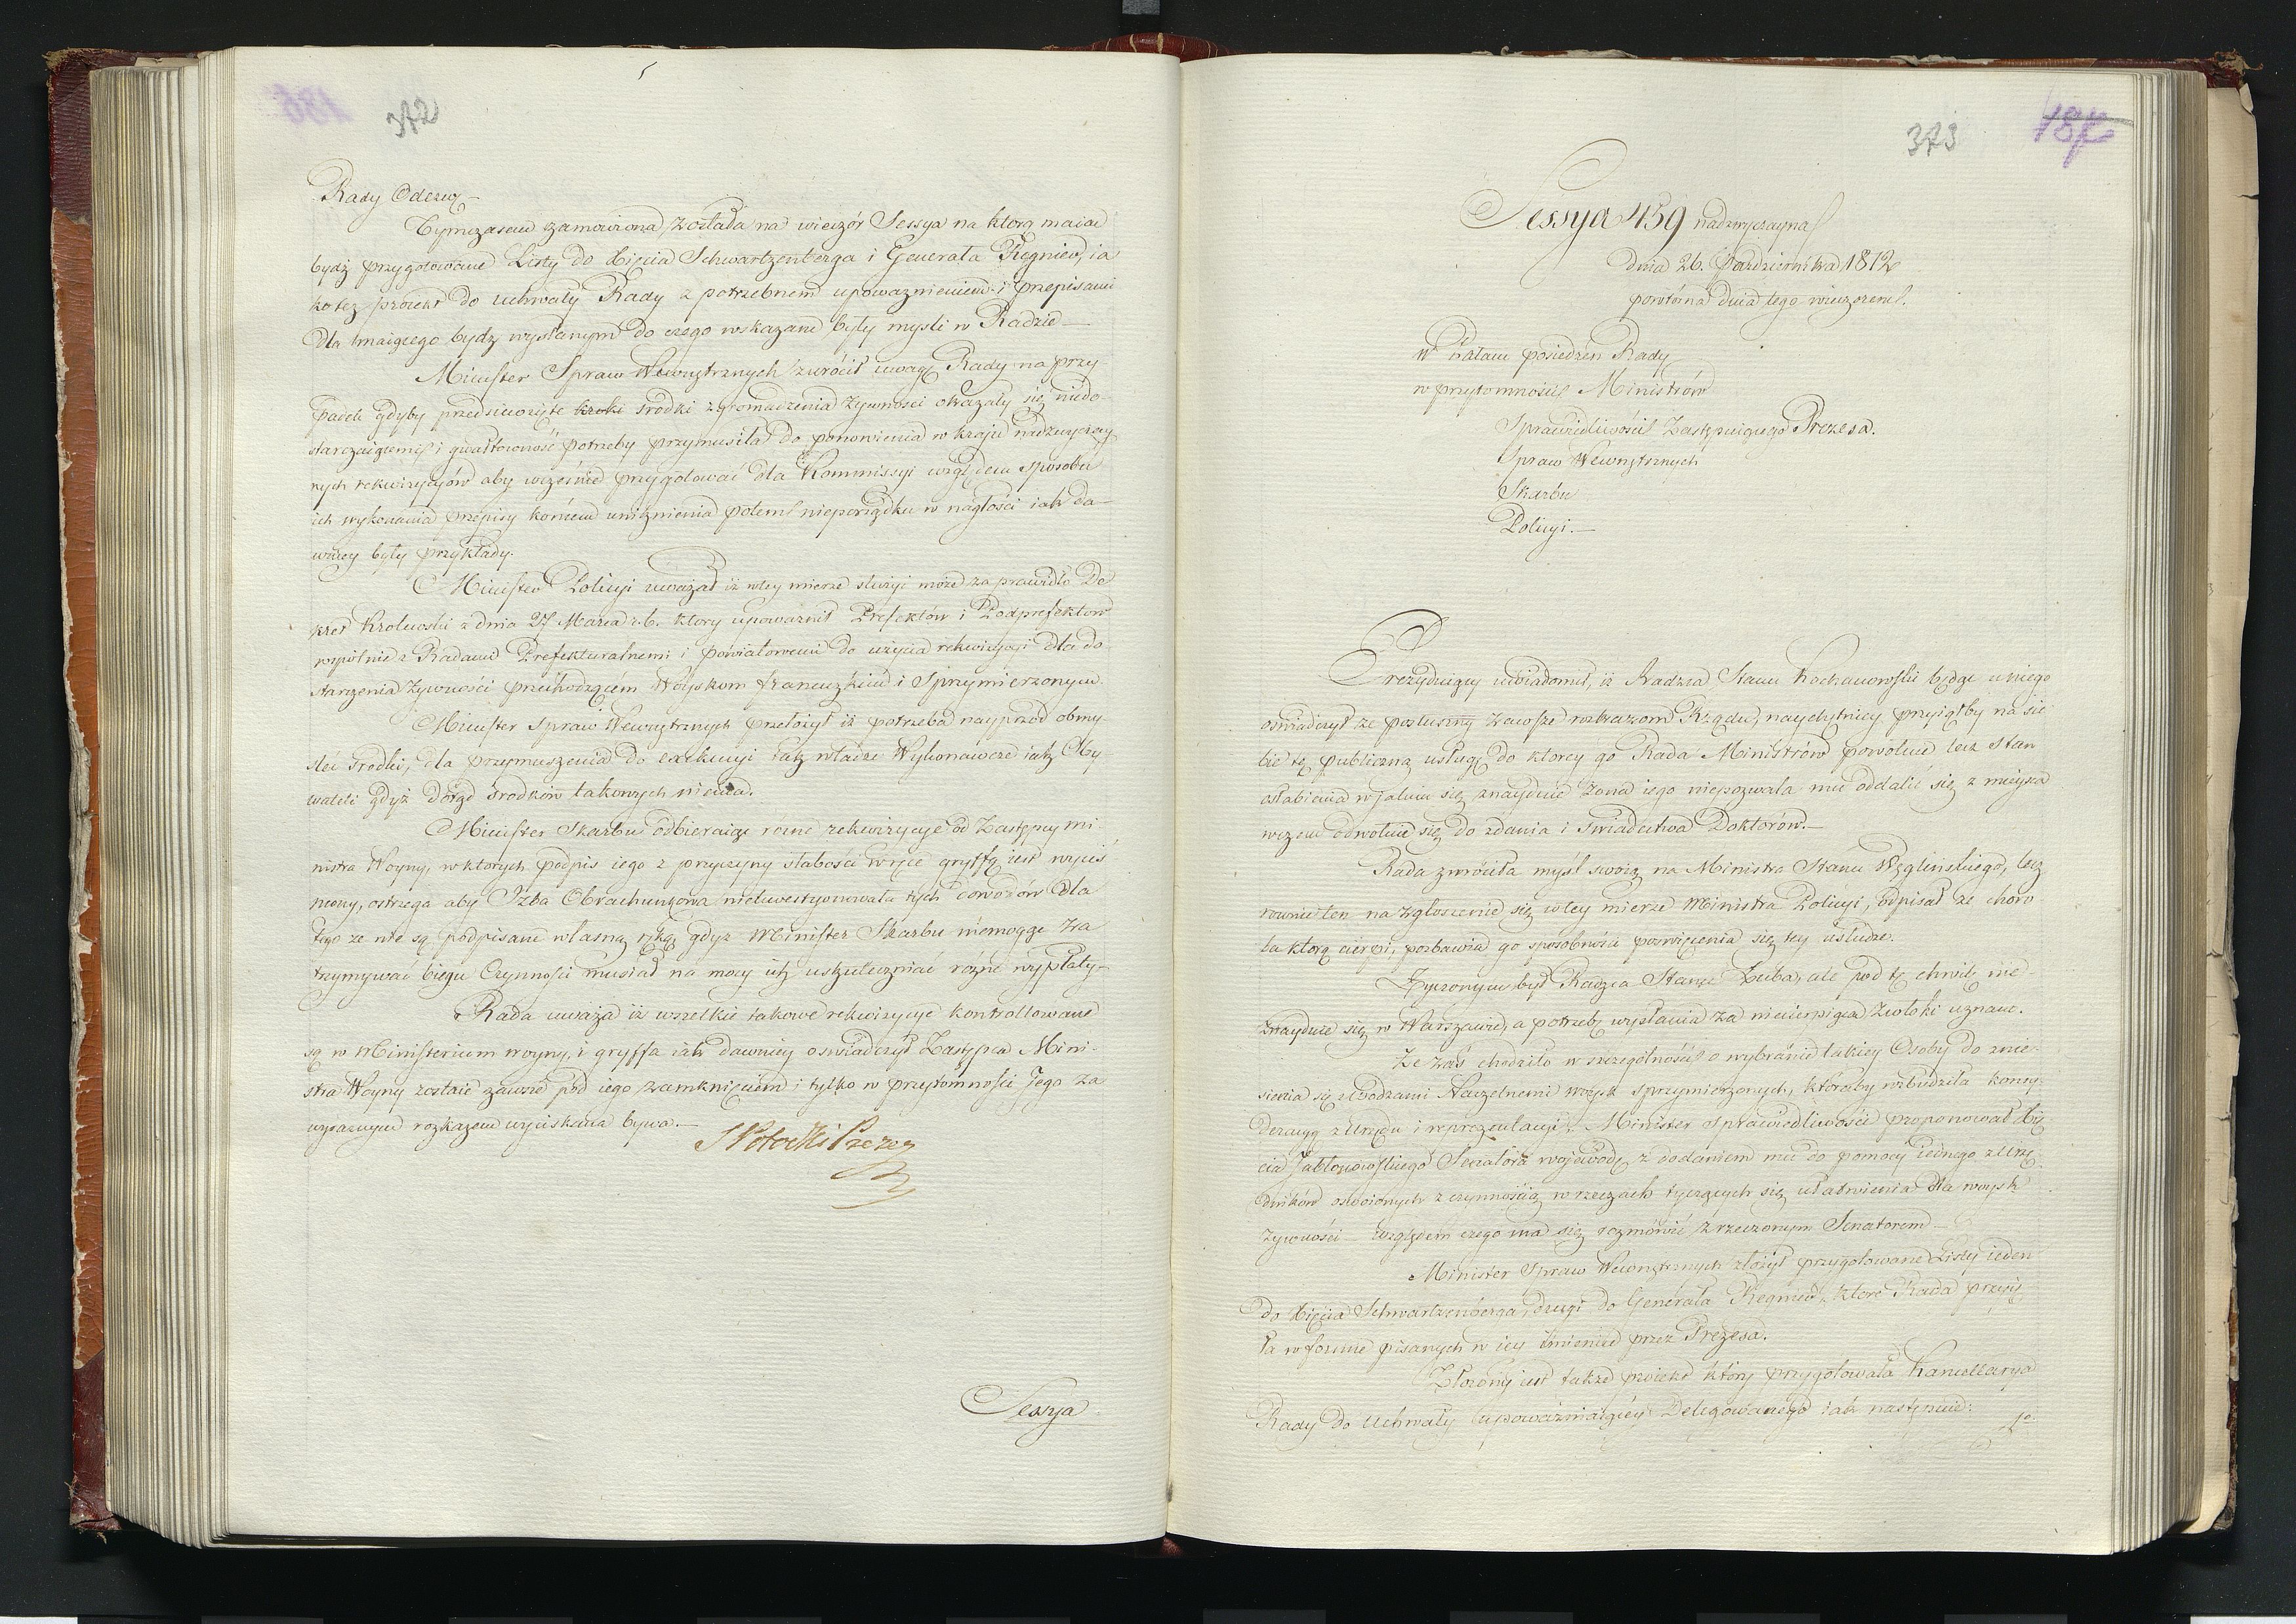 372
Rady Odezwę
Tymczasem zamówiona została na wieczór Sessya na ktorą maiać
bydź przygotowane Listy do Xięcia Schwartzenberga i Generała Regnier, ia
ko też proiekt do uchwały Rady z potrzebnem upoważnieniem i przepisami
dla maiącego bydz wysłanym do czego wskazane były mysli w Radzie —
Minister Spraw Wewnętrznych zwrócił uwagę Rady na przy
padek gdyby przedsiewzięte kroki srodki zgromadzenia żywnosci okazały się niedo-
starczaiącemi i gwałtowność potrzeby przymusiła do ponowienia w kraju nadzwyczay
nych rekwizycyów aby wcześnie przygotować dla Kommissyi względem sposobu
ich wykonania przepisy końcem uniknienia potem nieporządku w nagłości iak da-
wniey były przykłady.
Minister Policyi uważał iż w tey mierze służyć może za prawidło De
kret Krolewski z dnia 27 Marca r. b. ktory upoważnił Prefektów i Podprefektow
wspólnie z Radami Prefekturalnemi i powiatowemi do użycia rekwizycyi dla do-
starczenia żywności przechodzącem Woyskom francuzkim i Sprzymierzonym.
Minister Spraw Wewnętrznych przełożył iż potrzeba nayprzód obmy-
sleć srodki, dla przymuszenia do exekucyi tak władze Wykonawcze iak Oby-
wateli gdyż dotąd srodków takowych niema.
Minister Skarbu odbieraiąc rózne rekwizycye od Zastępcy mi-
nistra Woyny, w ktorych podpis iego z przyczyny słabości w ręce gryffą iest wyciś
niony, ostrzega aby Izba Obrachunkowa niekwestyonowała tych dowodów dla
tego ze nie są podpisane własną ręką gdyz Minister Skarbu niemogąc za
trzymywać biegu Czynności musiał na mocy ich uskuteczniać rózne wypłaty —
Rada uważa iż wszelkie takowe rekwizycye kontrollowane
są w Ministerium woyny, i gryffa iak dawniey oswiadczył Zastępca Mini-
stra Woyny zostaie zawsze pod iego zamknięciem i tylko w przytomności Jego za
wyraznym rozkazem wyciskana bywa. —
S Potocki Prezes
Sessya
373
187
Sessya 459 nadzwyczayna
Dnia 26. Pazdziernika 1812
powtórna dnia tego wieczorem.
W Pałacu posiedzeń Rady
w przytomności Ministrów
Sprawiedliwości Zastępuiącego Prezesa.
Spraw Wewnętrznych
Skarbu
Policyi. —
Prezyduiący uwiadomił, iż Radzca Stanu Kochanowski będąc u niego
oswiadczył ze posłuszny zawsze rozkazom Rządu, naychętniey przyiąłby na sie
bie tę publiczną usługę do ktorey go Rada Ministrów powołuie lecz stan
osłabienia w jakim się znayduie żona iego niepozwala mu oddalić się z mieysca
wczem odwołuie się do zdania i swiadectwa Doktorów. —
Rada zwróciła myśl swoię na Ministra Stanu Węglinskiego, lecz
rownie ten na zgłoszenie się w tey mierze Ministra Policyi, odpisał ze choro
ba ktorą cierpi, pozbawia go sposobności poswięcenia się tey usłudze.
Życzonym był Radzca Stanu Łuba, ale pod tę chwilę nie
znayduie się w Warszawie, a potrzebę wysłania za niecierpiącą zwłoki uznano.
Ze zaś chodziło w szczególności o wybranie takiey Osoby do znie-
sienia się z Wodzami Naczelnemi woysk sprzymierzonych, ktoraby wzbudziła konsy-
deracyą z Urzędu i reprezentacyi, Minister Sprawiedliwości proponował Xię
cia Jabłonowskiego Senatora wojewodę z dodaniem mu do pomocy iednego z Urzę
dników oswoionych z czynnością w rzeczach tyczących się ułatwienia dla woysk
żywności — względem czego ma się rozmówić z rzeczonym Senatorem —
Minister Spraw Wewnętrznych złożył przygotowane Listy ieden
do Xięcia Schwartzenberga, drugi do Generała Regnier, ktore Rada przyię
ła w formie pisanych w iey imieniu przez Prezesa.
Złożony iest także proiekt który przygotowała Kancellarya
Rady do Uchwały upoważniaiącey Delegowanego iak następuie:
1o